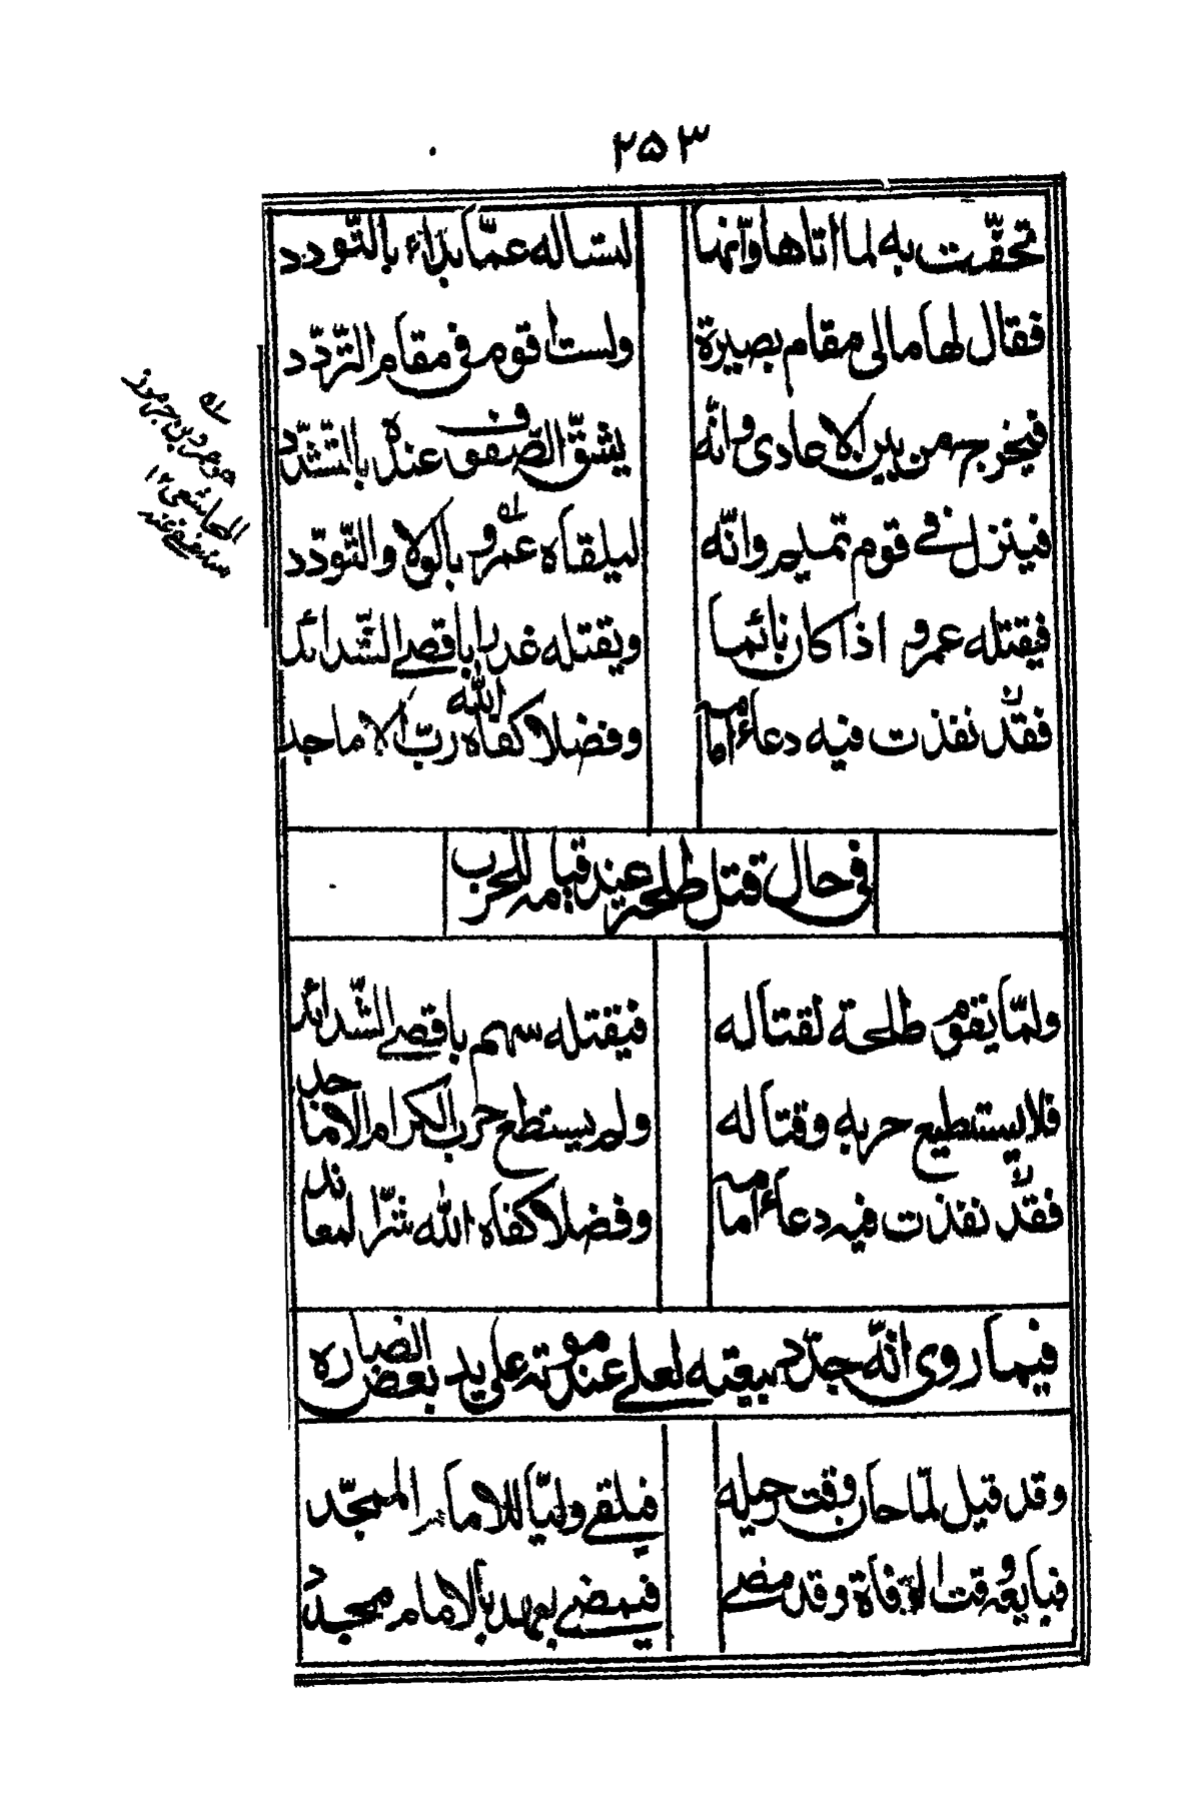 ۲۵۳
تحقّرت به لما اتاها وانها لتساله عمّا بداء بالتّودد
فقال لها مالى مقام بصيرة ولست اقوم فى مقام التّردّد
فيخرج من بين الاعادى وانّه يشقّ الصّفوف عنده بالتّشدّد
فينزل فے قوم تميم وانّه ليلقاه عمرو بالولاء والتّودّد
فيقتله عمرو اذا كان نائما ويقتله غدرا باقصے الشّدائد
فقد نفذت فيه دعاء امامه وفضلا كفاه الله ربّ الاماجد
هو عمرو بن جرموز
فى حال قتل طلحة عند قيامه للحرب
ولمّا يقوم طلحة لقتاله فيقتله سهم باقصے الشّدائد
فلا يستطيع حربه وقتاله ولم يستطع حرب الكرام الاماجد
فقد نفذت فيه دعاء امامه وفضلا كفاه الله شرّ المعاند
فيما روى انّه جدّد بيعته لعلے عند موته على يد بعض انصاره
وقد قيل لمّا حان وقت رحيله فيلقے وليّا للامام الممجّد
فبايعه وقت الوفاة وقد مضے فيمضے بعهد بالامام ممجّد